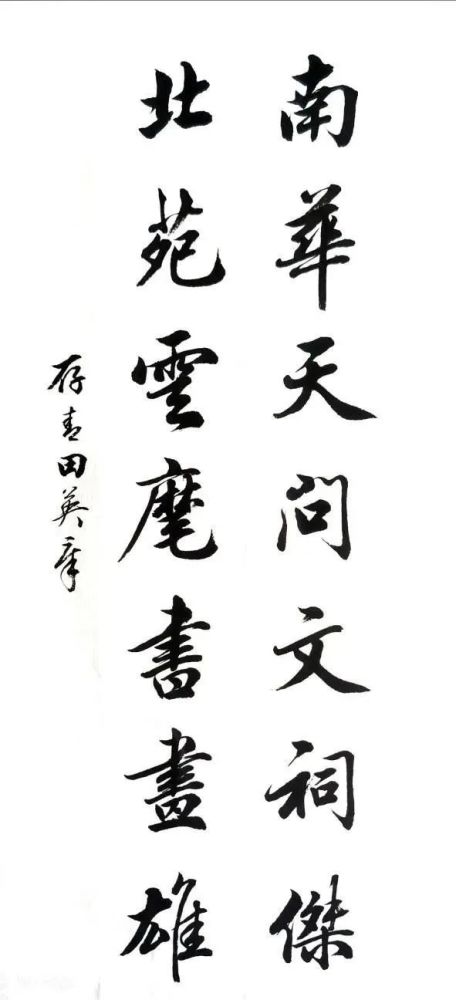 南華天問文祠傑
北苑雲麾書畫雄
存青田英章